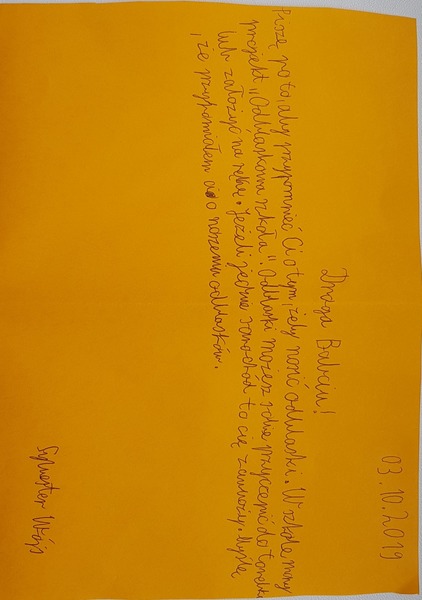 03.10.2019
Droga Babciu!
Piszę po to, aby przypomnieć Ci o tym, żeby nosić odblaski. W szkole mamy
projekt „Odblaskowa szkoła". Odblaski możesz sobie przyczepić do torebki
lub założyć na rękę. Jeżeli jedzie samochód to cię zauważy. Myślę
, że przypomniałem o noszeniu odblasków.
Sylwester Wójs